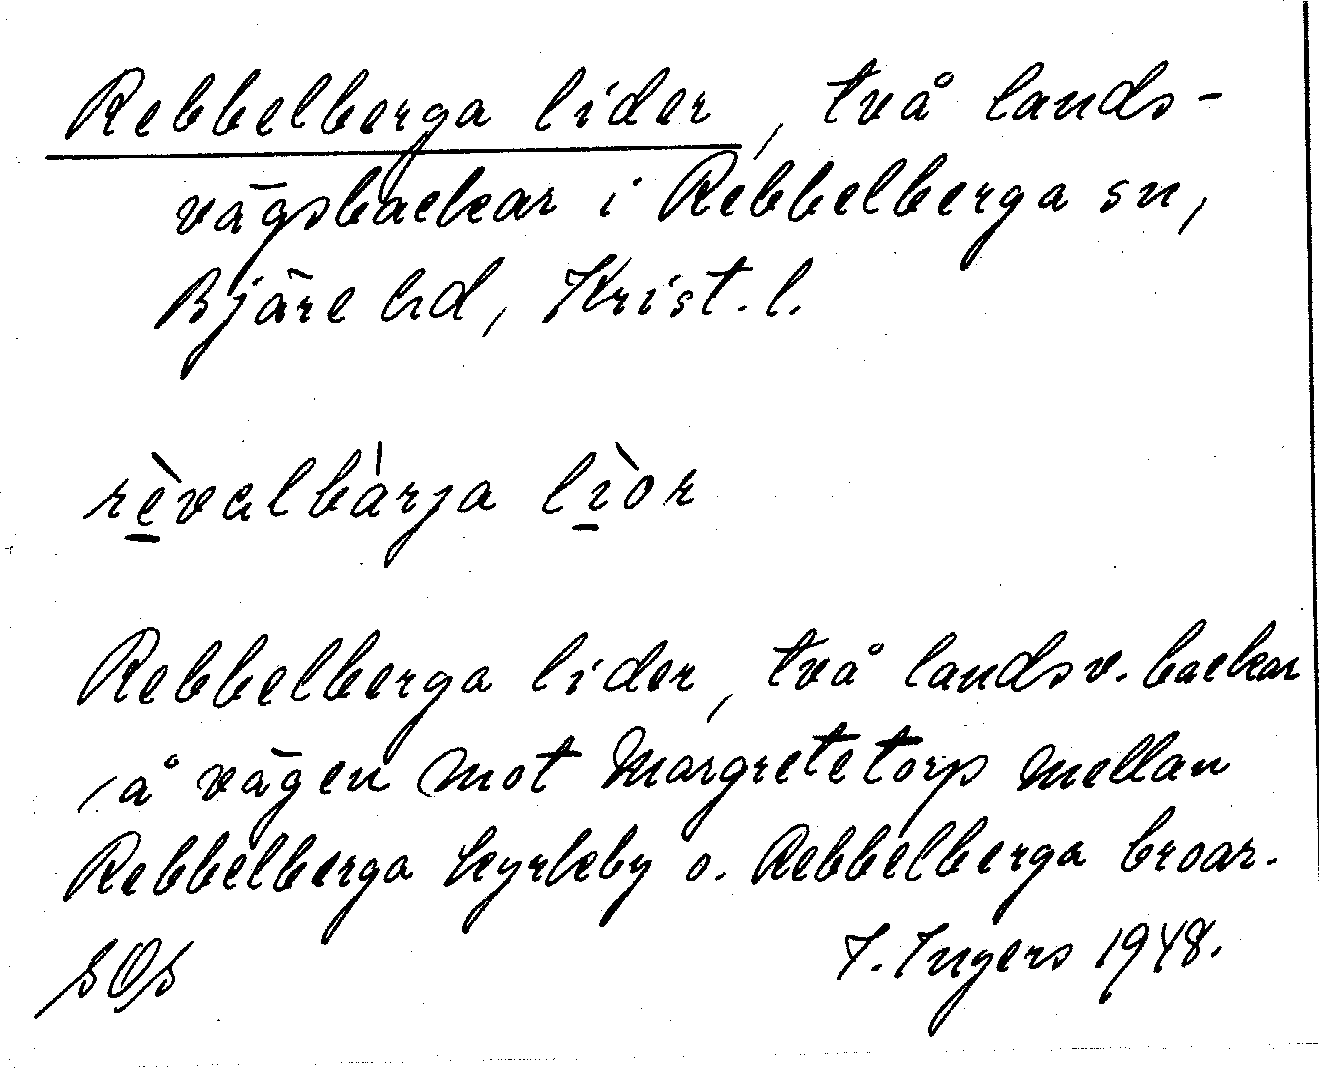 Rebbelberga lider, två lands-
vägsbackar i Rebbelberga sn,
Bjäre hd, Krist. l.
rèvalbàrja lìor
Rebbelberga lider, två landsv. backar
å vägen mot Margretetorp mellan
Rebbelberga kyrkby o. Rebbelberga broar.
SOS
I. Ingers 1948.